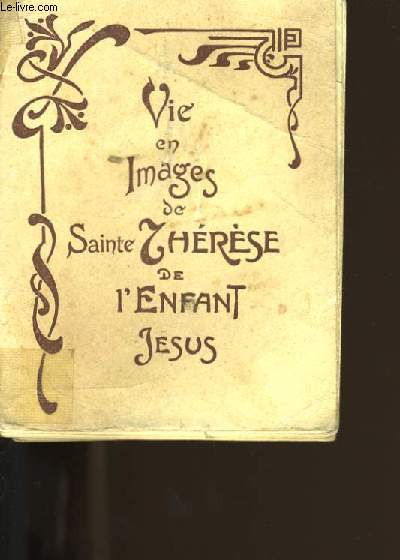 Le-livre.com
Vie
en
Images
de
Sainte THÉRÈSE
DE
l'ENFANT
JESUS